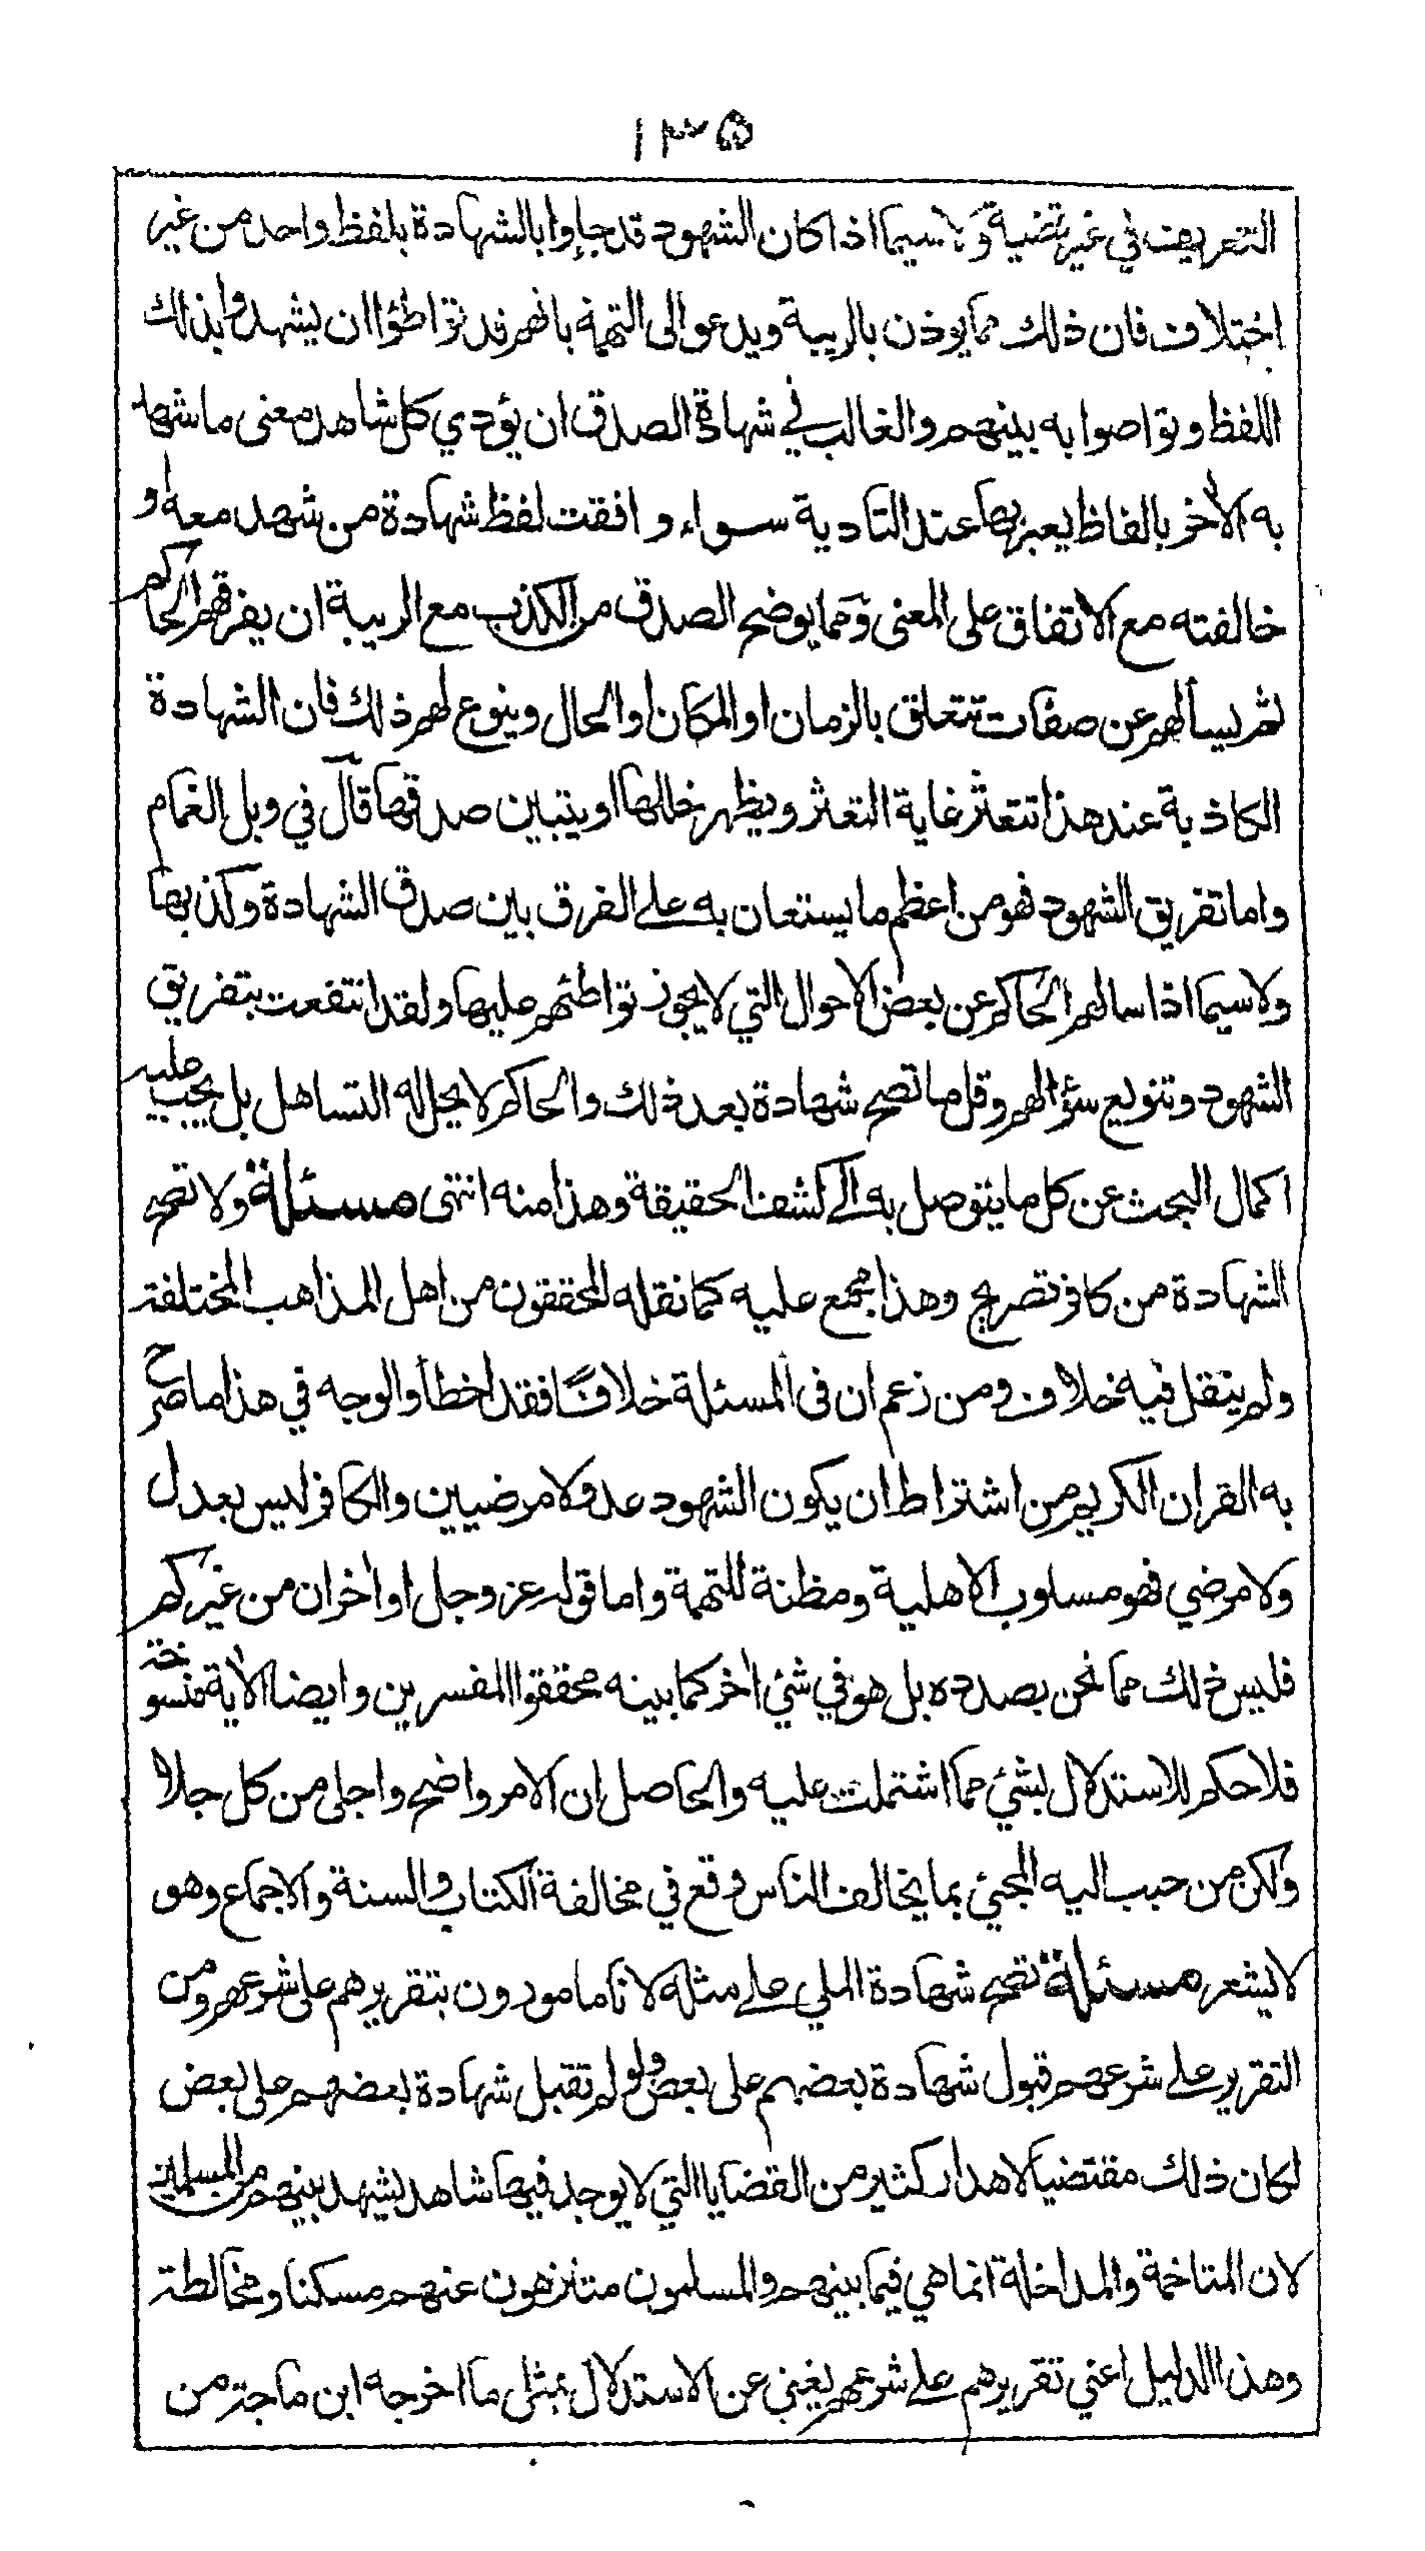 ١٣٥
التعريف في غير قضية ولا سيما اذا كان الشهود قد جاؤا بالشهادة بلفظ واحد من غير
اختلاف فان ذلك مما يوذن بالريبة ويدعوالى التهمة بانهم قد تواطؤا ان يشهدوا بذلك
اللفظ وتواصوا به بينهم والغالب في شهادة الصدق ان يؤدي كل شاهد معنى ما شهد
به الأخر بالفاظ يعبر بها عند التادية سواء وافقت لفظ شهادة من شهد معه او
خالفته مع الاتفاق على المعنى ومما يوضح الصدق من الكذب مع الريبة ان يفرقهم الحاكم
ثم يسألهم عن صفات تتعلق بالزمان او المكان او الحال وينوع لهم ذلك فان الشهادة
الكاذبة عند هذا تتعثر غاية التعثر ويظهر خللها او يتبين صدقها قال في وبل الغمام
واما تفريق الشهود فهو من اعظم ما يستعان به على الفرق بين صدق الشهادة وكذبها
ولاسيما اذا سالهم الحاكم عن بعض الاحوال التي لا يجوز تواطئهم عليها ولقد انتفعت بتفريق
الشهود وتنويع سؤالهم وقل ما تصح شهادة بعد ذلك والحاكم لا يحل له التساهل بل يجب عليه
اكمال البحث عن كل ما يتوصل به الى كشف الحقيقة وهذا منه انتهى مسئلة ولا تصح
الشهادة من كافر تصريح وهذا مجمع عليه كما نقله المحققون من اهل المذاهب المختلفة
ولم ينقل فيه خلاف ومن زعم ان فى المسئلة خلافًا فقد اخطأ والوجه في هذا ما صرح
به القران الكريم من اشتراط ان يكون الشهود عدولا مرضيين والكافر ليس بعدل
ولا مرضي فهو مسلوب الاهلية ومظنة للتهمة واما قوله عز وجل او اخران من غيركم
فليس ذلك مما نحن بصدده بل هو في شئ اخر كما بينه محققوا المفسرين وايضا الأية منسوخة
فلا حكم للاستدلال بشئ مما اشتملت عليه والحاصل ان الامر واضح واجلى من كل جلاء
ولكن من حبب اليه المجئ بما يخالف الناس وقع في مخالفة الكتاب والسنة والاجماع وهو
لا يشعر مسئلة تصح شهادة الملي على مثله لانا مامورون بتقريرهم على شرعهم ومن
التقرير على شرعهم قبول شهادة بعضهم على بعض ولو لم تقبل شهادة بعضهم على بعض
لكان ذلك مقتضيا لاهدار كثير من القضايا التي لا يوجد فيها شاهد يشهد بينهم من المسلمين
لان المتاخمة والمداخلة انما هي فيما بينهم والمسلمون متنزهون عنهم مسكنا ومخالطة
وهذا الدليل اعني تقريرهم على شرعهم يغني عن الاستدلال بمثل ما اخرجه ابن ماجة من